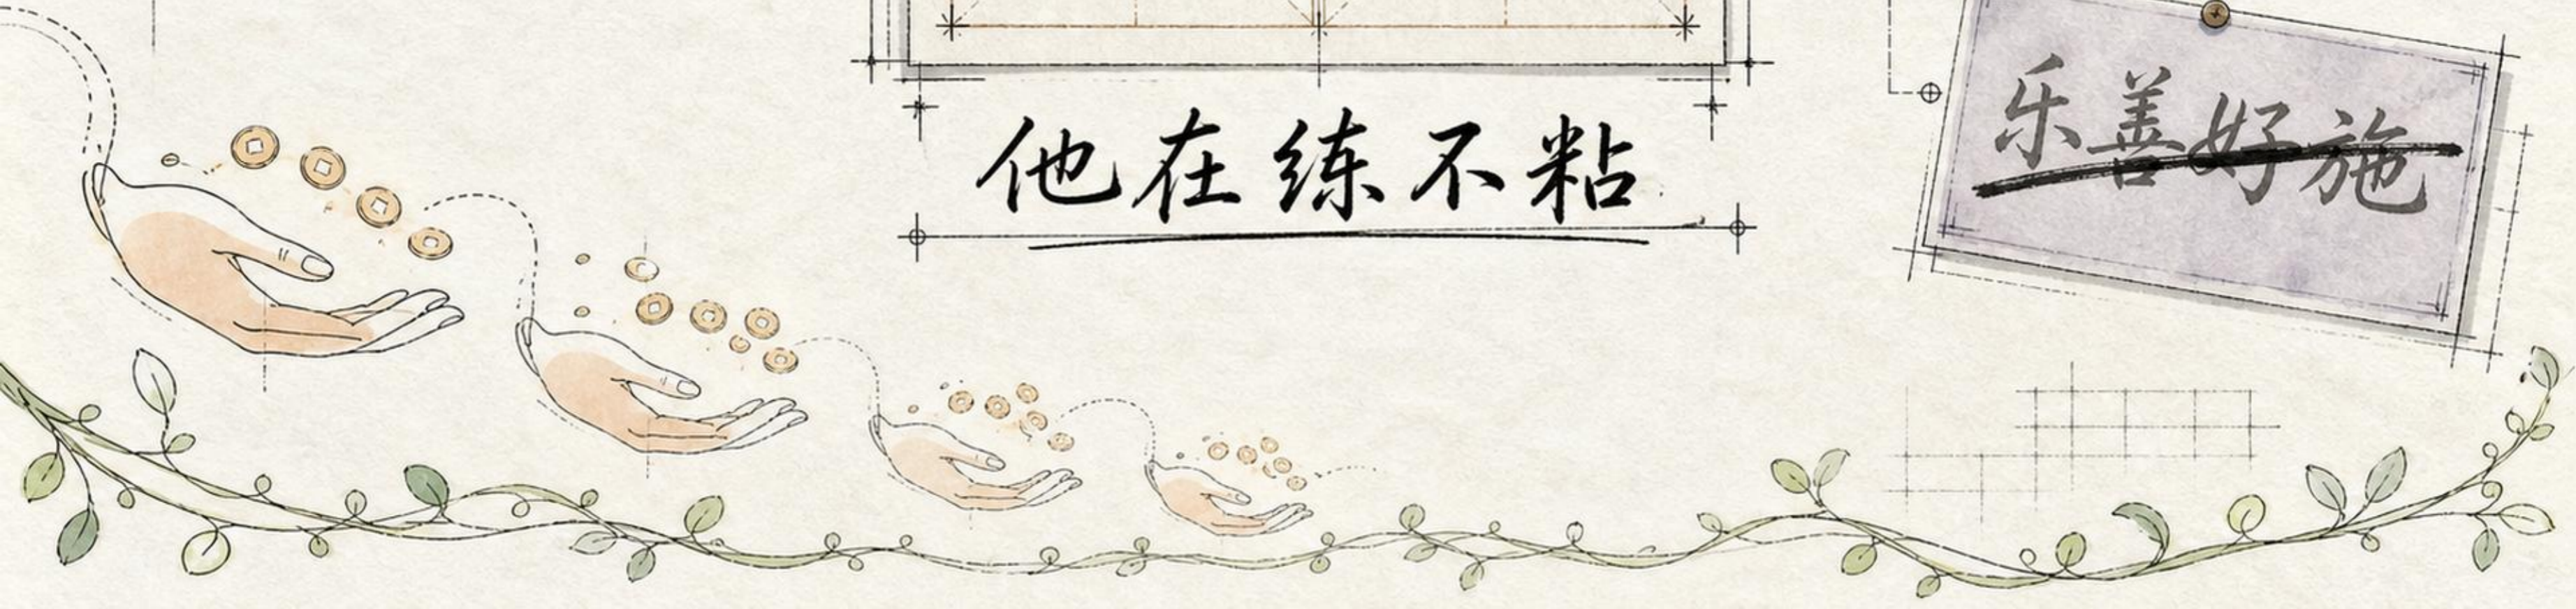 他在练不粘
乐善好施